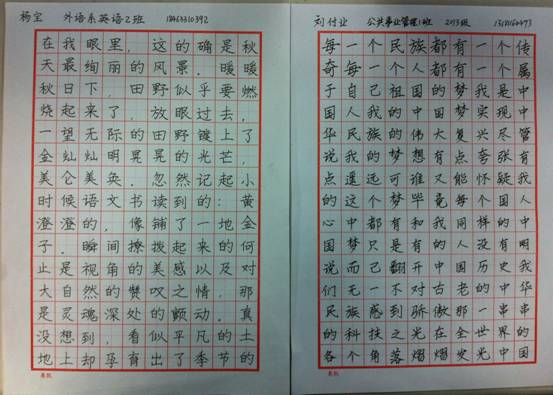 杨宝 外语系英语2班 18463310392
在我眼里，这的确是秋
天最绚丽的风景．暖暖
秋日下，田野似乎要燃
烧起来了，放眼过去，
一望无际的田野镀上了
金灿灿明晃晃的光芒，
美仑美奂．忽然记起小
时候语文书读到的：黄
澄澄的，像铺了一地金
子．瞬间撩拨起来的何
止是视角的美感以及对
大自然的赞叹之情，那
是灵魂深处的颤动．真
没想到，看似平凡的土
地上却孕育出了季节的
刘付业 公共事业管理1班 2013级
每一个民族都有一个传
奇每一个人都有一个属
于自己祖国的梦我是中
国人我的中国梦实现中
华民族的伟大复兴尽管
说我的梦想有点夸张有
点遥远可谁又能怀疑我
的这个梦毕竟每个国人
心中都有和我同样的中
国梦只是有的人没有明
说而己翻开中国历史我
们无一不对古老的中华
民族感到骄傲那一串串
的科技之光在全世界的
各个角落熠熠发光中国